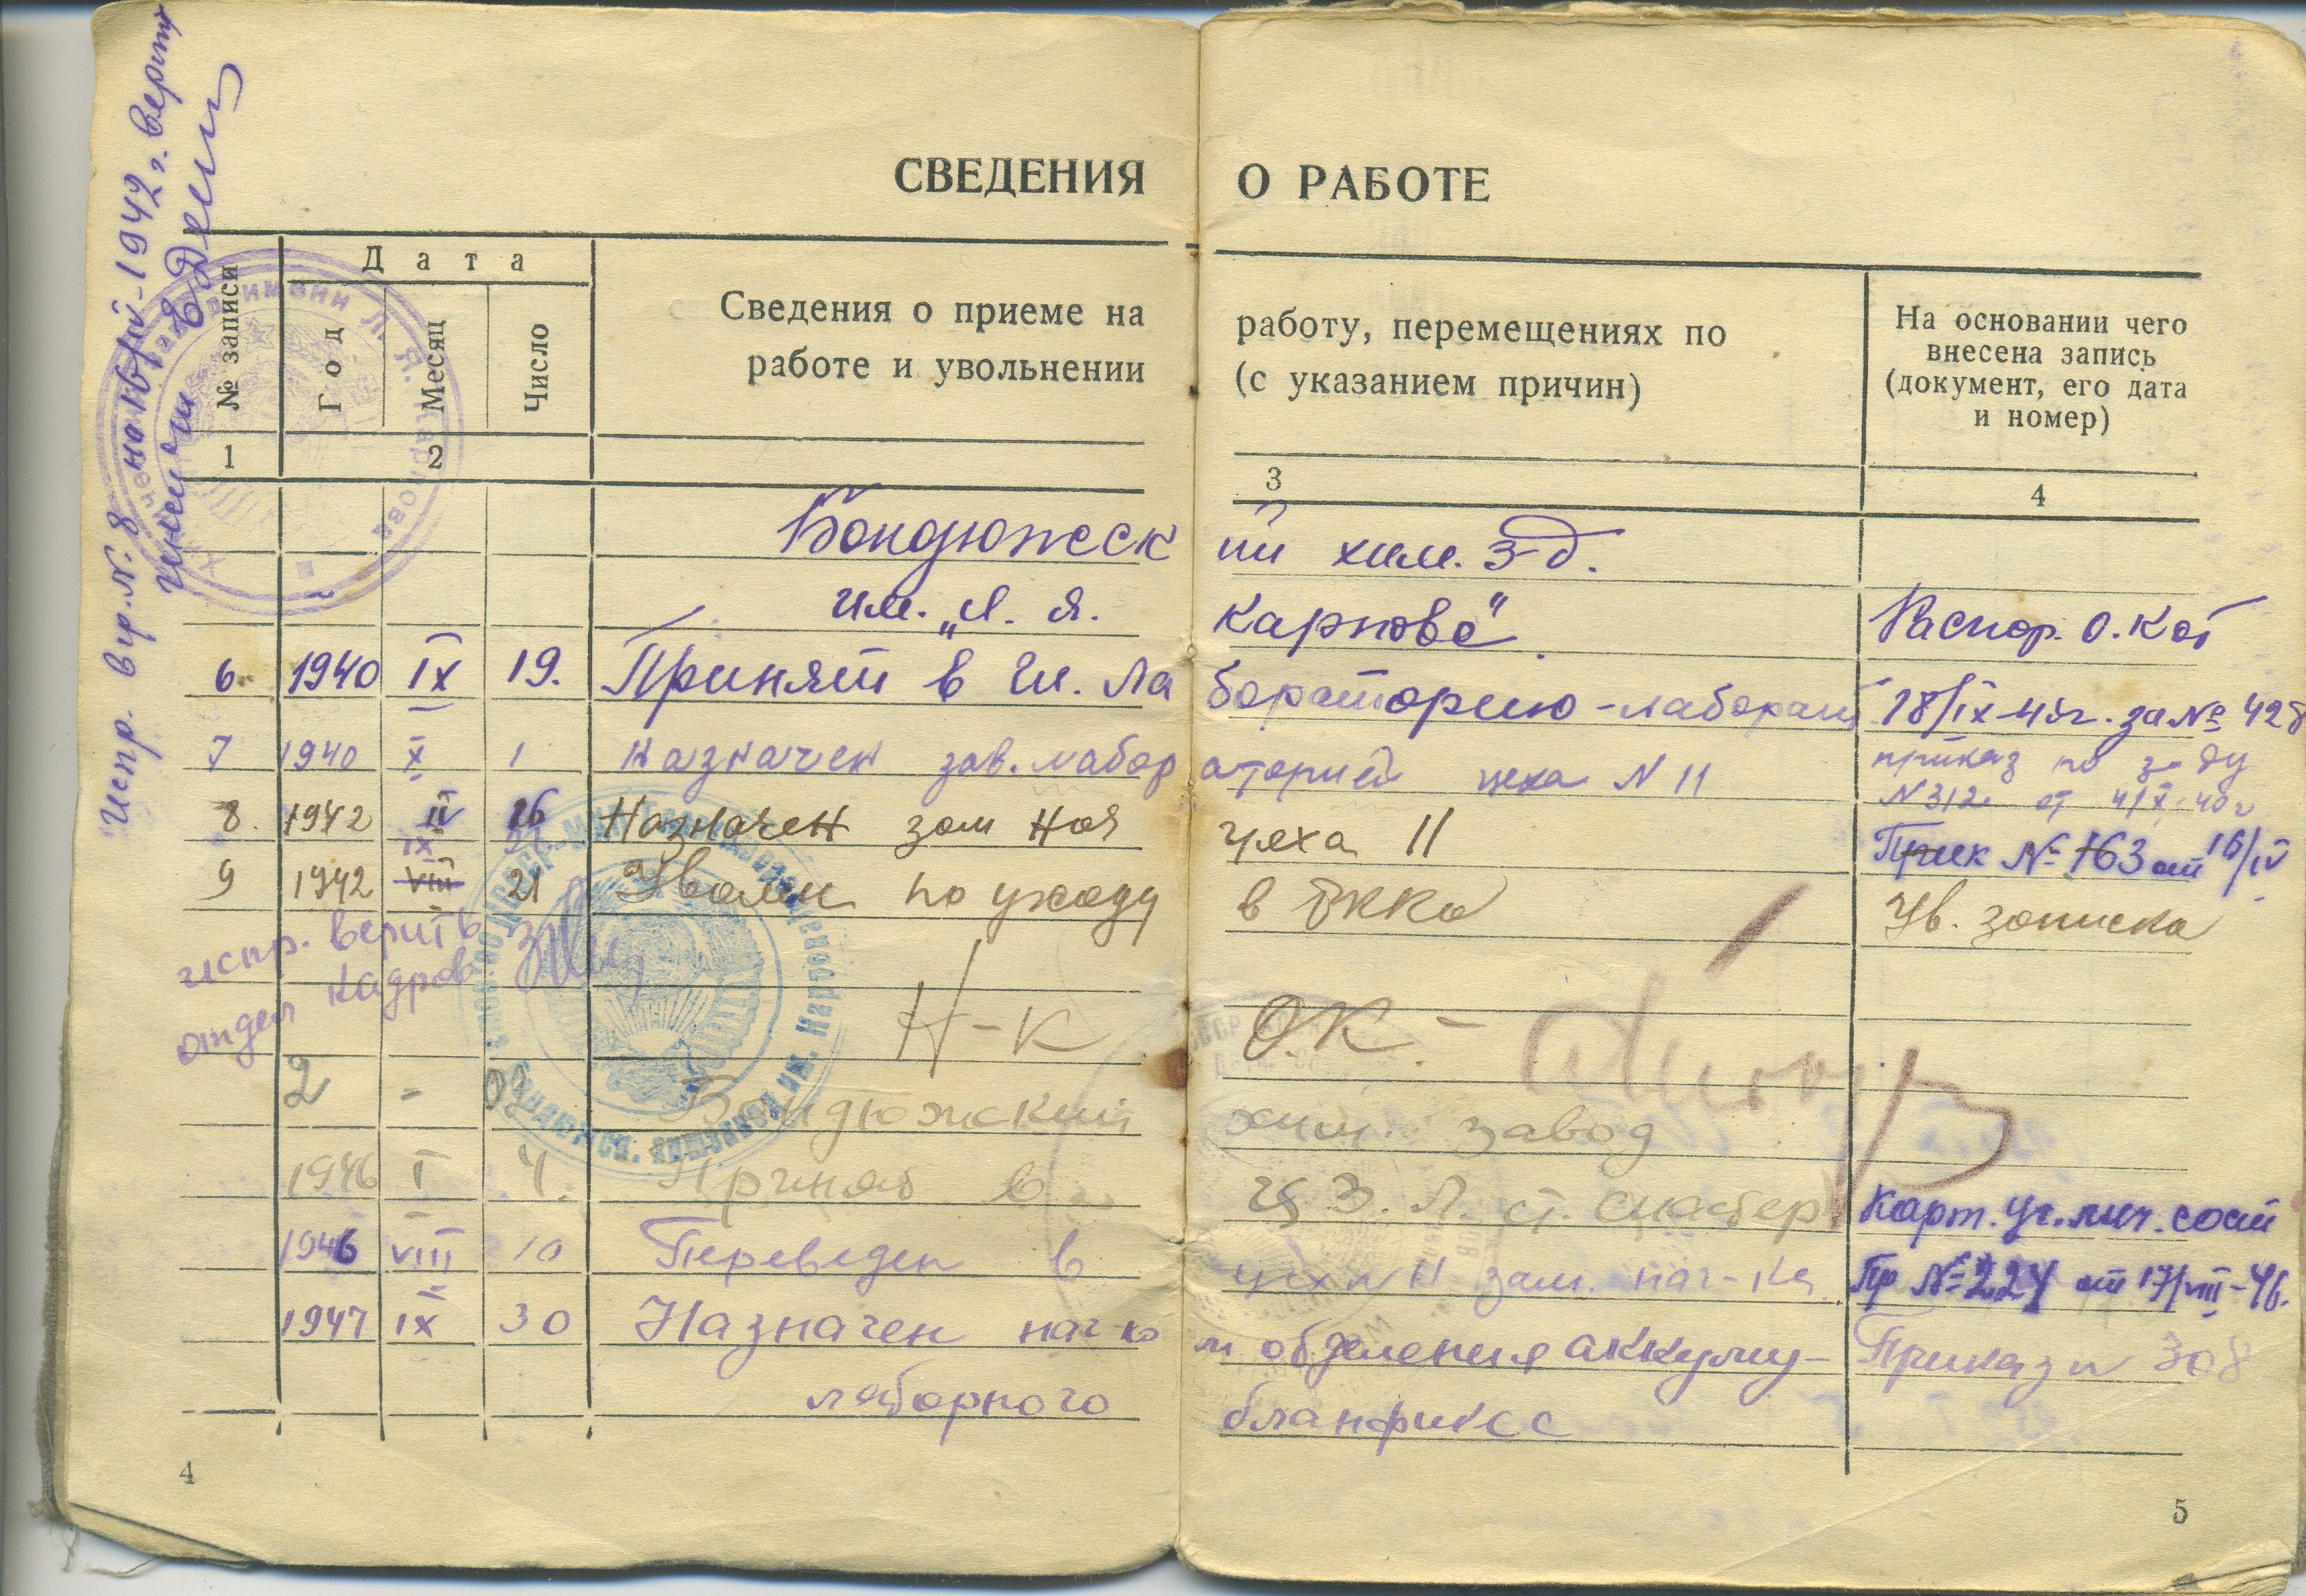 Испр. в гр. N. 8 на 16/IV-1942 г. верить
СВЕДЕНИЯ О РАБОТЕ
№ записи
Дата
Год
Месяц
Число
Сведения о приеме на работу, перемещениях по
работе и увольнении (с указанием причин)
На основании чего
внесена запись
(документ, его дата
и номер)
1 2 3 4
Бондюжский хим. з-д.
им. „Л. Я. Карпова"
Распор. О. Кад
6. 1940 IX 19. Принят в Цг. Лабораторию - лаборант 18/IX-40г. за № 428
7 1940 X 1 Назначен зав. лабораторией цеха N 11 приказ по з-ду
N 312 от 4/X 40 г
8. 1942 IV 16 Назначен зам нач цеха 11 Прик № 163 от 16/IV
IX
9 1942 VIII 21 Уволен по уходу в РККА Ув. записка
испр. верить
отдел кадров
Н-К О.К. -
2 - 02 Бондюжский хим. завод
1946 I 4. Принят в ЦЗ.Л. ст. мастер Карт. уч. лич. сост
1946 VIII 10 Переведен в цех N 11 зам. нач-ка Пр № 224 от 17/VIII-46.
1947 IX 30 Назначен нач-ком отделения аккуму- Приказ N 308
ляторного бланфикса
4
5